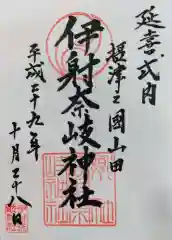 延喜式内
摂津之國山田
伊射奈岐神社
平成二十九年
十月二十八日